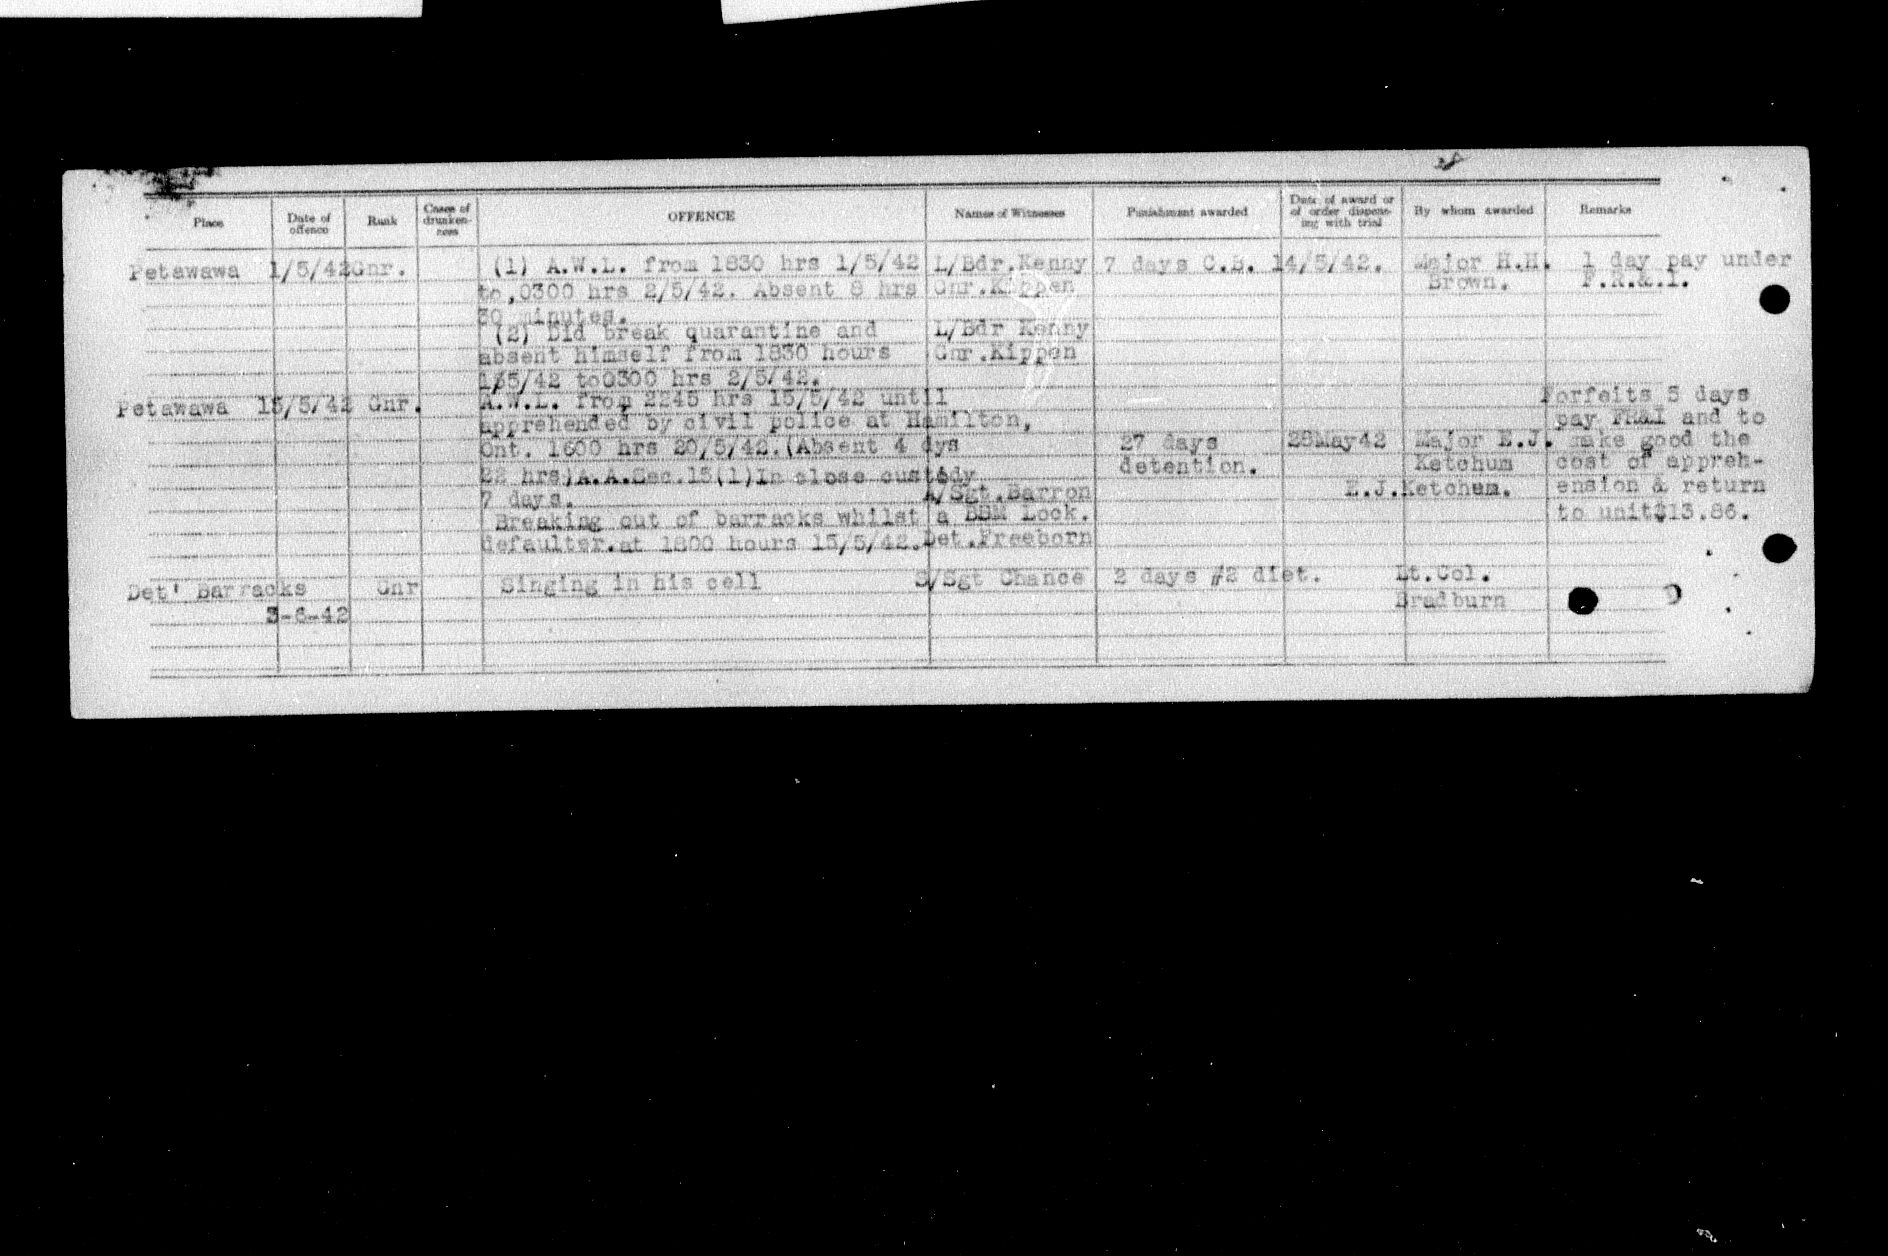 Place Date of offence Rank Cases of drunkenness OFFENCE Names of Witnesses Punishment awarded Date of award or of order dispensing with trial By whom awarded Remarks
Petawawa 1/5/42 Gnr. (1) A.W.L. from 1830 hrs 1/5/42 L/Bdr.Kenny 7 days C.B. 14/5/42. Major H.H. 1 day pay under
to,0300 hrs 2/5/42. Absent 8 hrs Gnr.Kippen Brown. F.R.&.I.
30 minutes.
(2) Did break quarantine and L/Bdr Kenny
absent himself from 1830 hours Gnr.Kippen
1/5/42 to0300 hrs 2/5/42.
Petawawa 15/5/42 Gnr. A.W.L. from 2245 hrs 15/5/42 until Forfeits 5 days
apprehended by civil police at Hamilton, pay FR&I and to
Ont. 1600 hrs 20/5/42.(Absent 4 dys 27 days 28May42 Major E.J. make good the
22 hrs)A.A.Sec.15(1)In close custody detention. Ketchum cost of appreh-
7 days. A/Sgt.Barron E.J.Ketchem. ension & return
Breaking out of barracks whilst a BBM Lock. to unit$13.86.
defaulter.at 1800 hours 15/5/42. Det.Freeborn
Det' Barracks Gnr Singing in his cell S/Sgt Chance 2 days #2 diet. Lt.Col.
3-6-42 Bradburn